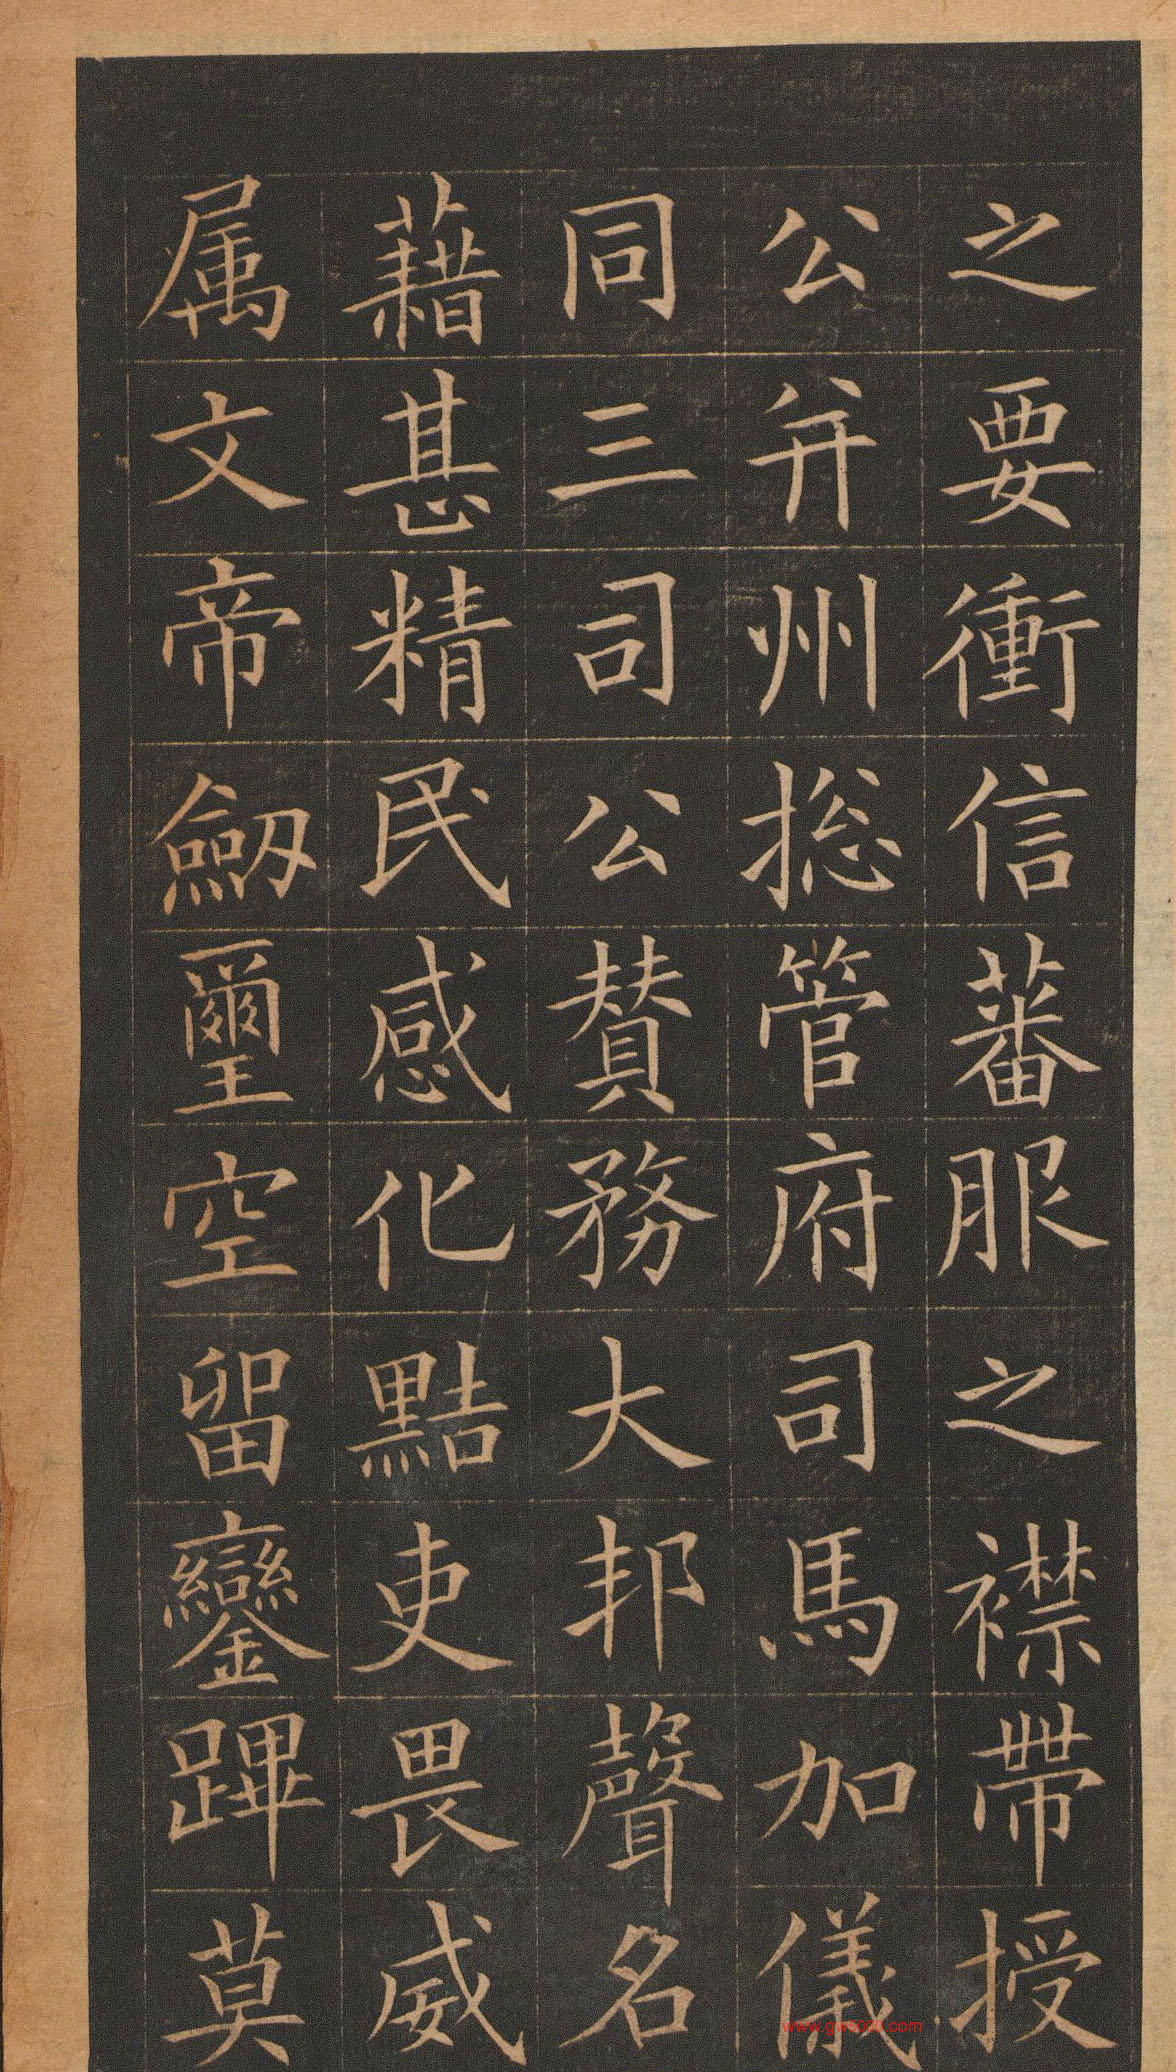 之要衝信蕃服之襟帶授
公并州揔管府司馬加儀
同三司公賛務大邦聲名
藉甚精民感化黠吏畏威
属文帝劒璽空留鑾蹕莫
www.gw5000.com